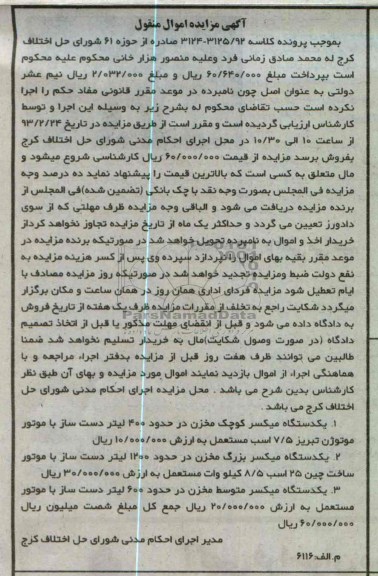 آگهی مزایده اموال منقول
بموجب پرونده کلاسه ۳۱۲۴-۳۱۲۵/۹۲ صادره از حوزه ۶۱ شورای حل اختلاف
کرج له محمد صادق زمانی فرد وعلیه منصور هزار خانی محکوم علیه محکوم
است بپرداخت مبلغ ۶۰/۶۴۰/۰۰۰ ریال و مبلغ ۲/۰۳۲/۰۰۰ ریال نیم عشر
دولتی به عنوان اصل چون نامبرده در موعد مقرر قانونی مفاد حکم را اجرا
نکرده است حسب تقاضای محکوم له بشرح زیر به وسیله این اجرا و توسط
کارشناس ارزیابی گردیده است و مقرر است از طریق مزایده در تاریخ ۹۳/۲/۲۴
از ساعت ۱۰ الی ۱۰/۳۰ در محل اجرای احکام مدنی شورای حل اختلاف کرج
بفروش برسد مزایده از قیمت ۶۰/۰۰۰/۰۰۰ ریال کارشناسی شروع میشود و
مال متعلق به کسی است که بالاترین قیمت را پیشنهاد نماید ده درصد وجه
مزایده فی المجلس بصورت وجه نقد یا چک بانکی (تضمین شده)فی المجلس از
برنده مزایده دریافت می شود و الباقی وجه مزایده ظرف مهلتی که از سوی
دادورز تعیین می گردد و حداکثر یک ماه از تاریخ مزایده تجاوز نخواهد کرداز
خریدار اخذ و اموال به نامبرده تحویل خواهد شد در صورتیکه برنده مزایده در
موعد مقرر بقیه بهای اموال را نپردازد سپرده وی پس از کسر هزینه مزایده به
نفع دولت ضبط ومزایده تجدید خواهد شد در صورتیکه روز مزایده مصادف با
ایام تعطیل شود مزایده فردای اداری همان روز در همان ساعت و مکان برگزار
میگردد شکایت راجع به تخلف از مقررات مزایده ظرف یک هفته از تاریخ فروش
به دادگاه داده می شود و قبل از انقضای مهلت مذکور یا قبل از اتخاذ تصمیم
دادگاه (در صورت وصول شکایت)مال به خریدار تسلیم نخواهد شد ضمنا
طالبین می توانند ظرف هفت روز قبل از مزایده بدفتر اجراء مراجعه و با
هماهنگی اجراء از اموال بازدید نمایند اموال مورد مزایده و بهای آن طبق نظر
کارشناس بدین شرح می باشد . محل مزایده اجرای احکام مدنی شورای حل
اختلاف کرج می باشد .
۱. یکدستگاه میکسر کوچک مخزن در حدود ۴۰۰ لیتر دست ساز با موتور
موتوژن تبریز ۷/۵ اسب مستعمل به ارزش ۱۰/۰۰۰/۰۰۰ ریال
۲. یکدستگاه میکسر بزرگ مخزن در حدود ۱۲۰۰ لیتر دست ساز با موتور
ساخت چین ۲۵ اسب ۸/۵ کیلو وات مستعمل به ارزش ۳۰/۰۰۰/۰۰۰ ریال
۳. یکدستگاه میکسر متوسط مخزن در حدود ۶۰۰ لیتر دست ساز با موتور
مستعمل به ارزش ۲۰/۰۰۰/۰۰۰ ریال جمع کل مبلغ شصت میلیون ریال
۶۰/۰۰۰/۰۰۰ ریال
مدیر اجرای احکام مدنی شورای حل اختلاف کرج
م.الف:۶۱۱۶